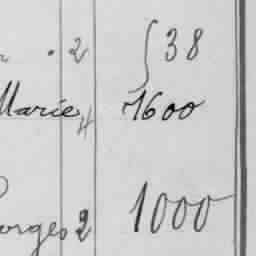 2 38
Marie 4 1600
orges 2 1000